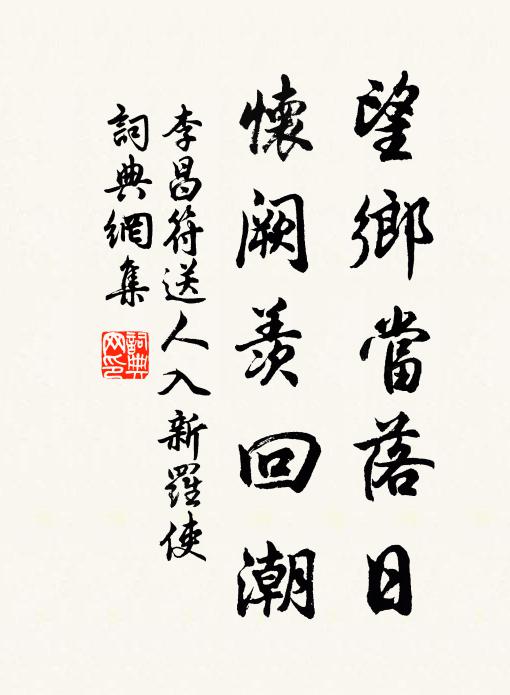 望鄉當落日
懷闕羨回潮
李昌符送人入新羅使
詞典網集
詞典網印